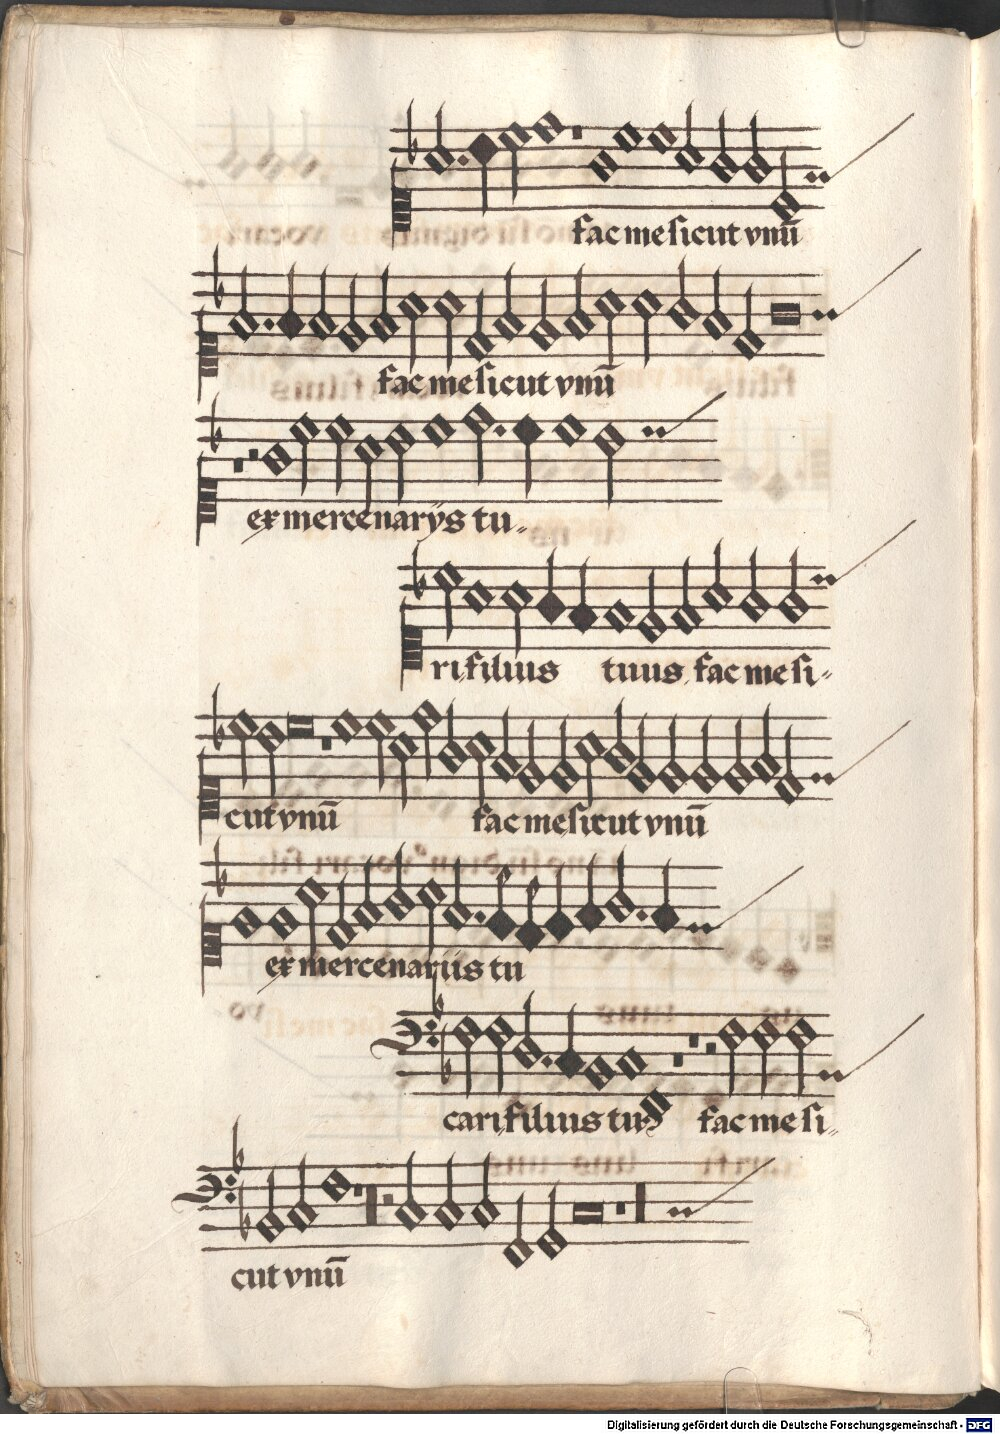 fac me sicut vnū
fac me sicut vnū
ex mercenarijs tu
ri filius tuus fac me si
cut vnū fac me sicut vnū
ex mercenarijs tu
cari filius tu fac me si
cut vnū
Digitalisierung gefördert durch die Deutsche Forschungsgemeinschaft - DFG